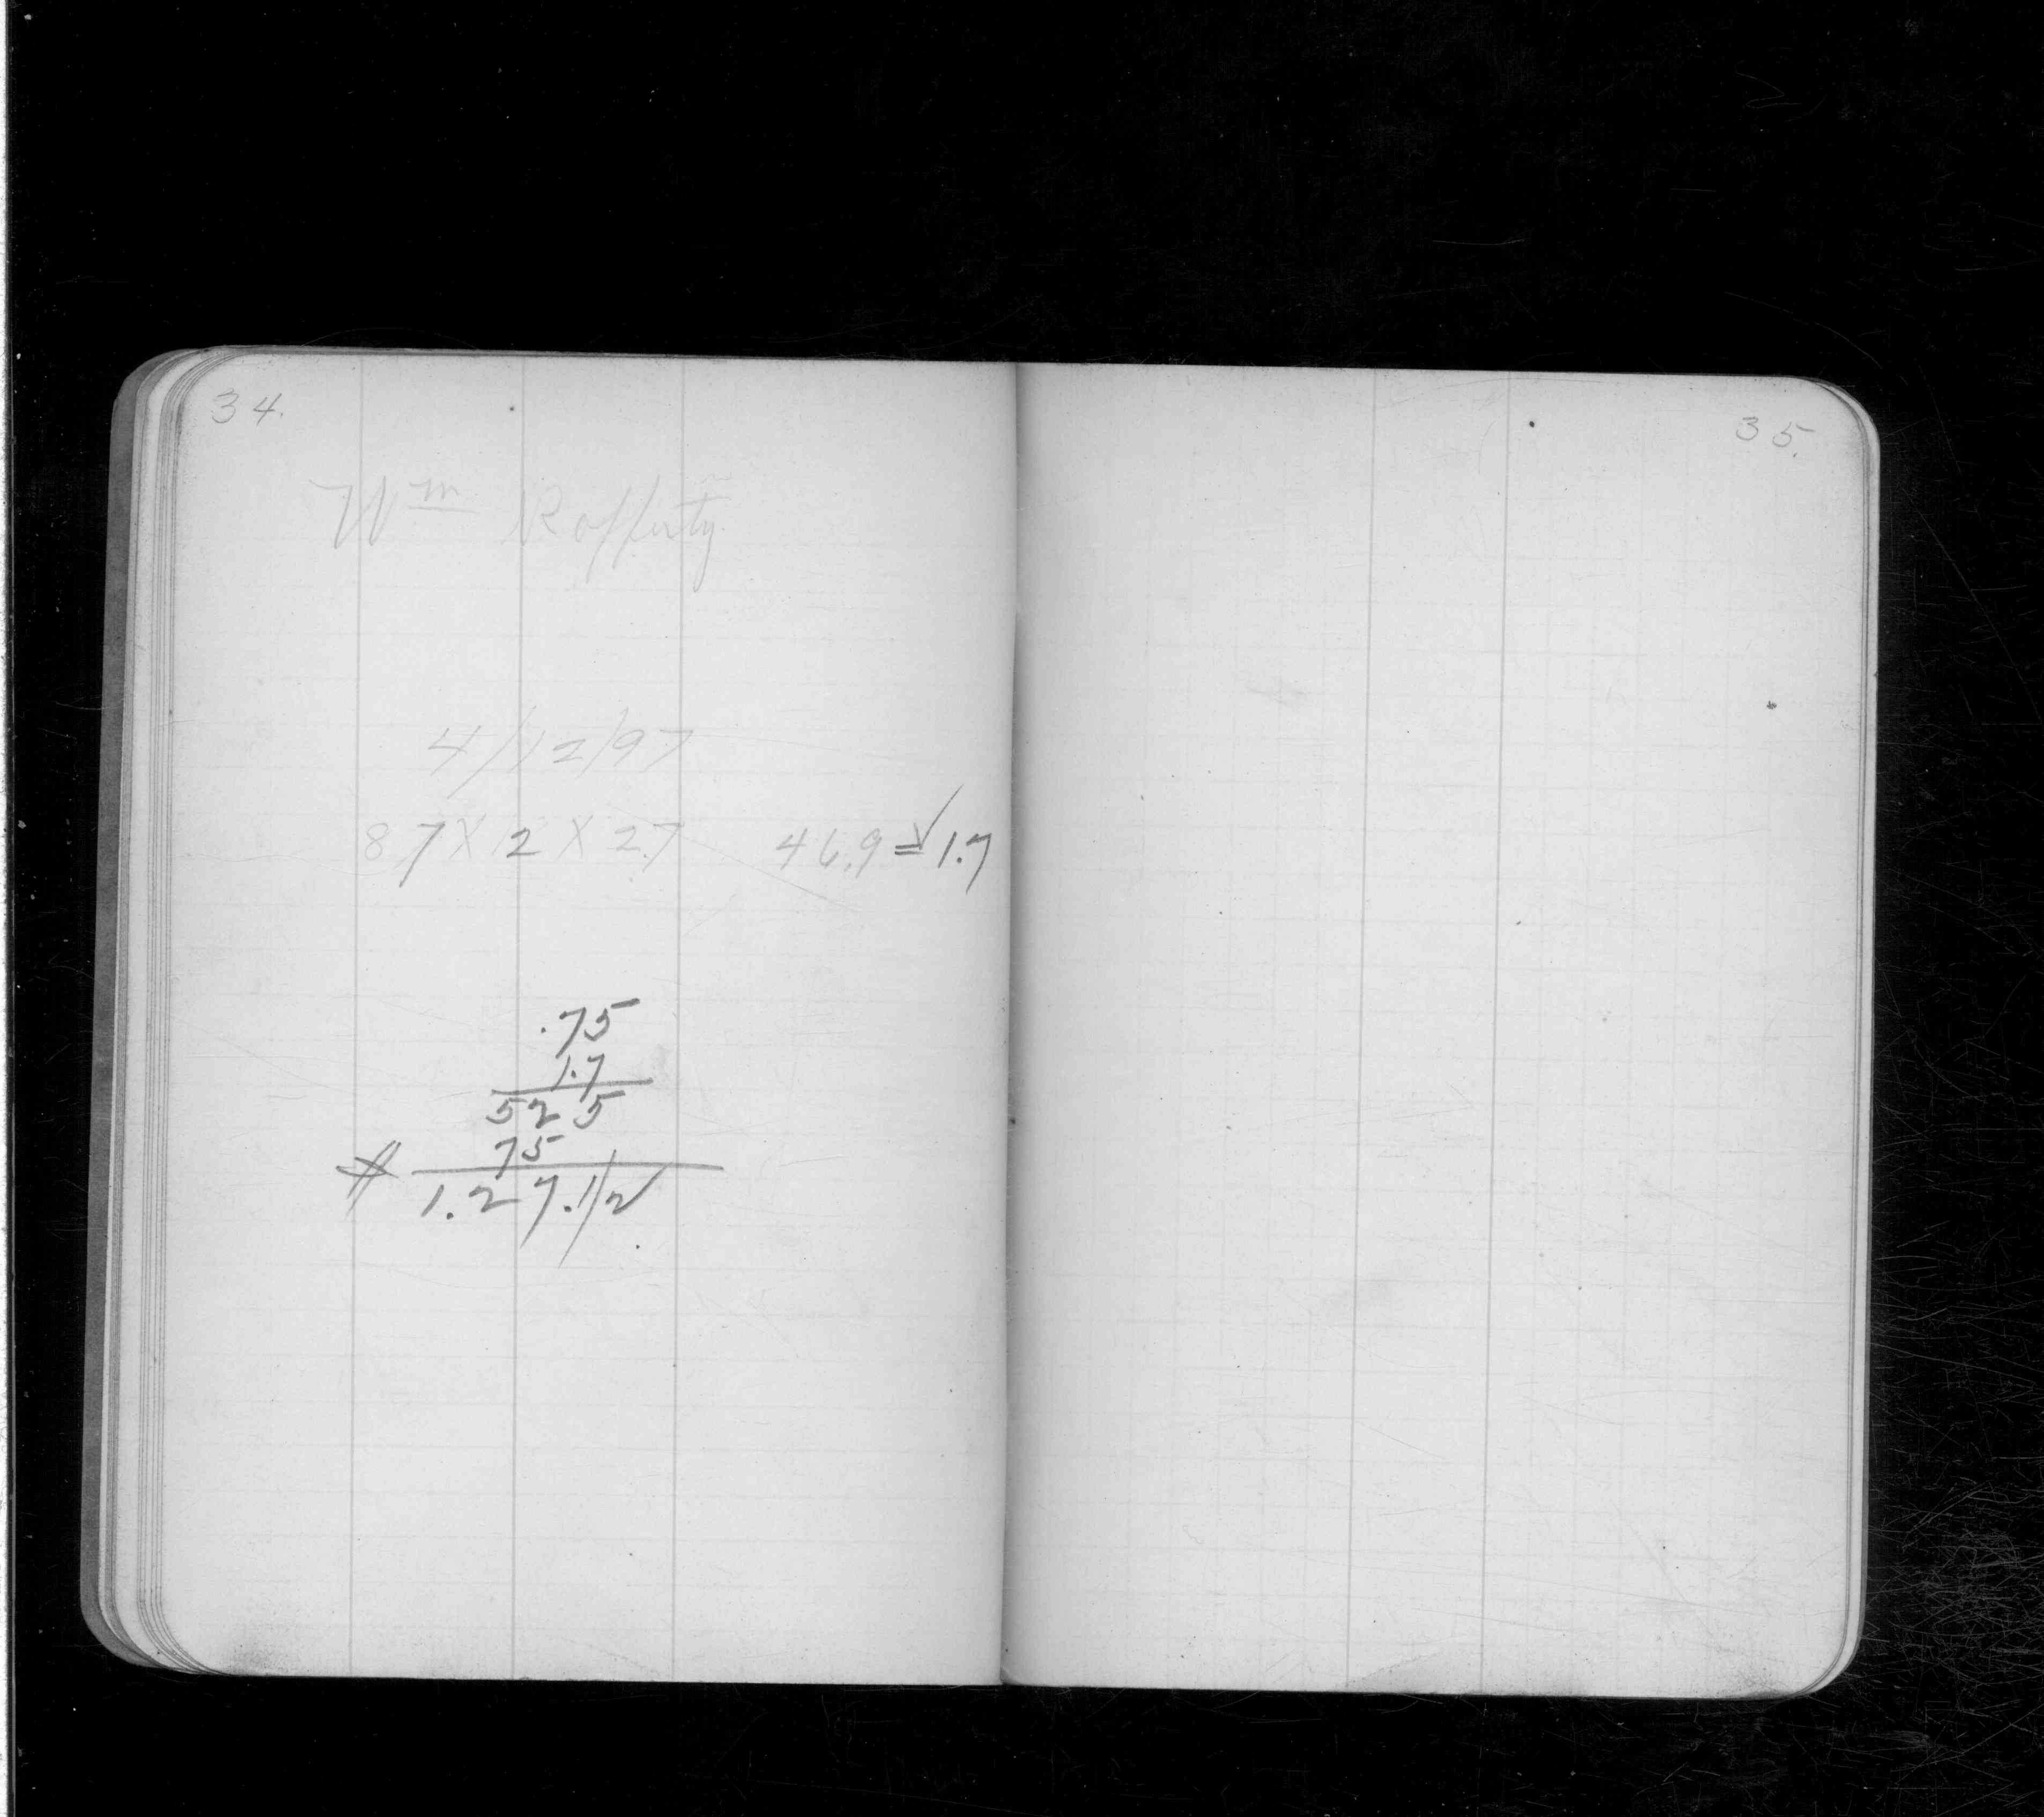 34.
Wm Rafferty
4/12/97
87 X 2 X 2.7 46.9 = 1.7
.75
1.7
525
75
# 1.27.1/2
35.